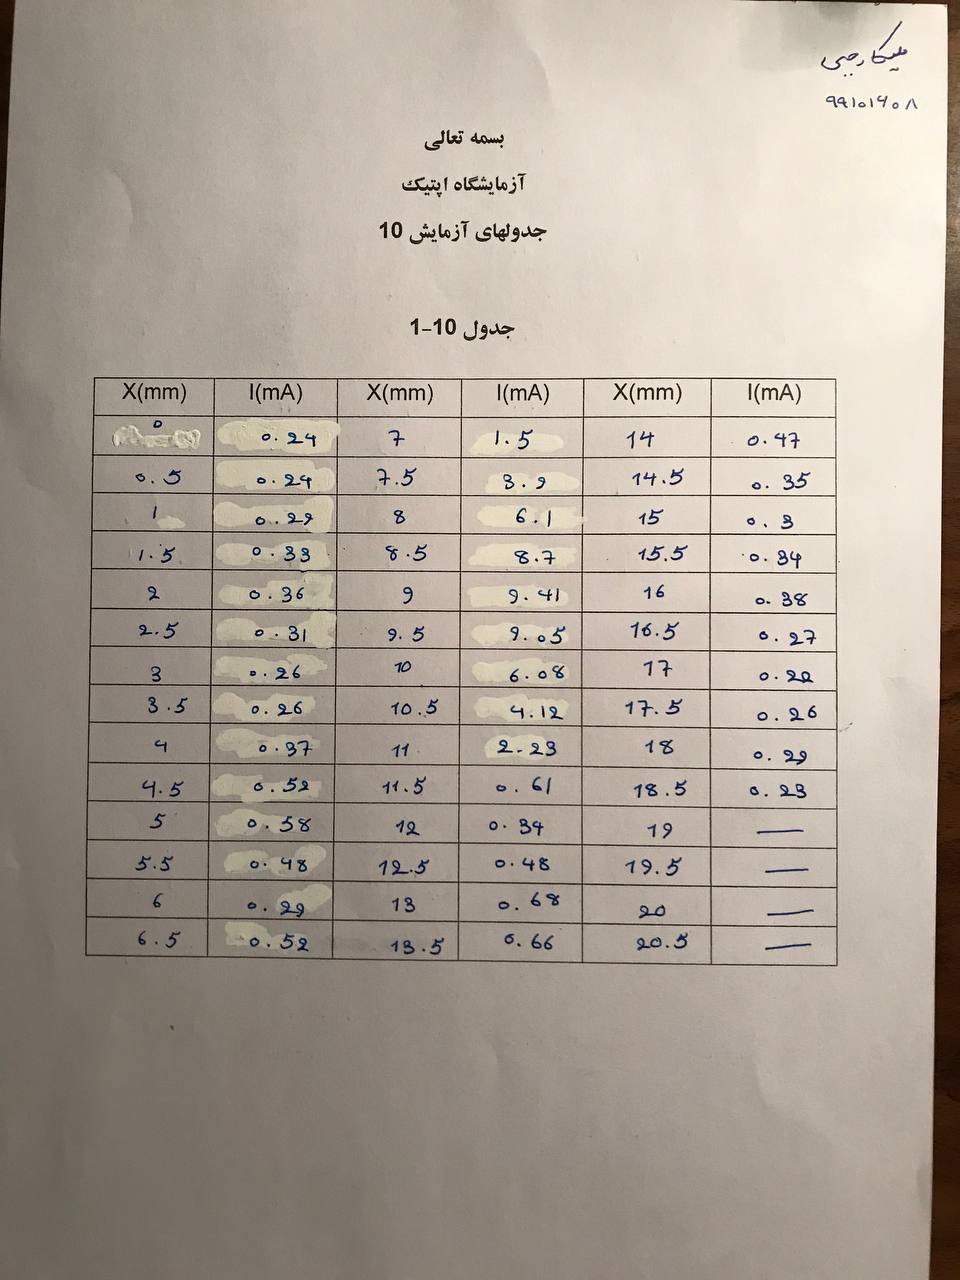 ملیکا رجبی
۹۹۱۰۱۶۰۸
بسمه تعالی
آزمایشگاه اپتیک
جدولهای آزمایش 10
جدول 10-1
X(mm) I(mA) X(mm) I(mA) X(mm) I(mA)
0 0.24 7 1.5 14 0.47
0.5 0.24 7.5 3.9 14.5 0.35
1 0.29 8 6.1 15 0.3
1.5 0.33 8.5 8.7 15.5 0.34
2 0.36 9 9.41 16 0.38
2.5 0.31 9.5 9.05 16.5 0.27
3 0.26 10 6.08 17 0.22
3.5 0.26 10.5 4.12 17.5 0.26
4 0.37 11 2.23 18 0.29
4.5 0.52 11.5 0.61 18.5 0.23
5 0.58 12 0.34 19 —
5.5 0.48 12.5 0.48 19.5 —
6 0.29 13 0.68 20 —
6.5 0.52 13.5 0.66 20.5 —